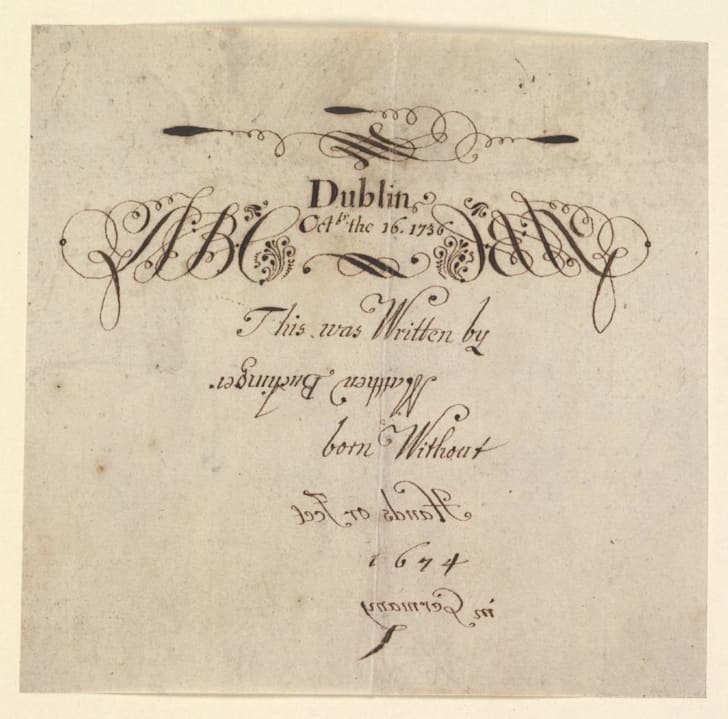 Dublin
A.B.C Octbr the 16. 1736 A.B.C
This was Written by
Matthew Buchinger.
born Without
Hands or Feet
1674
in Germany